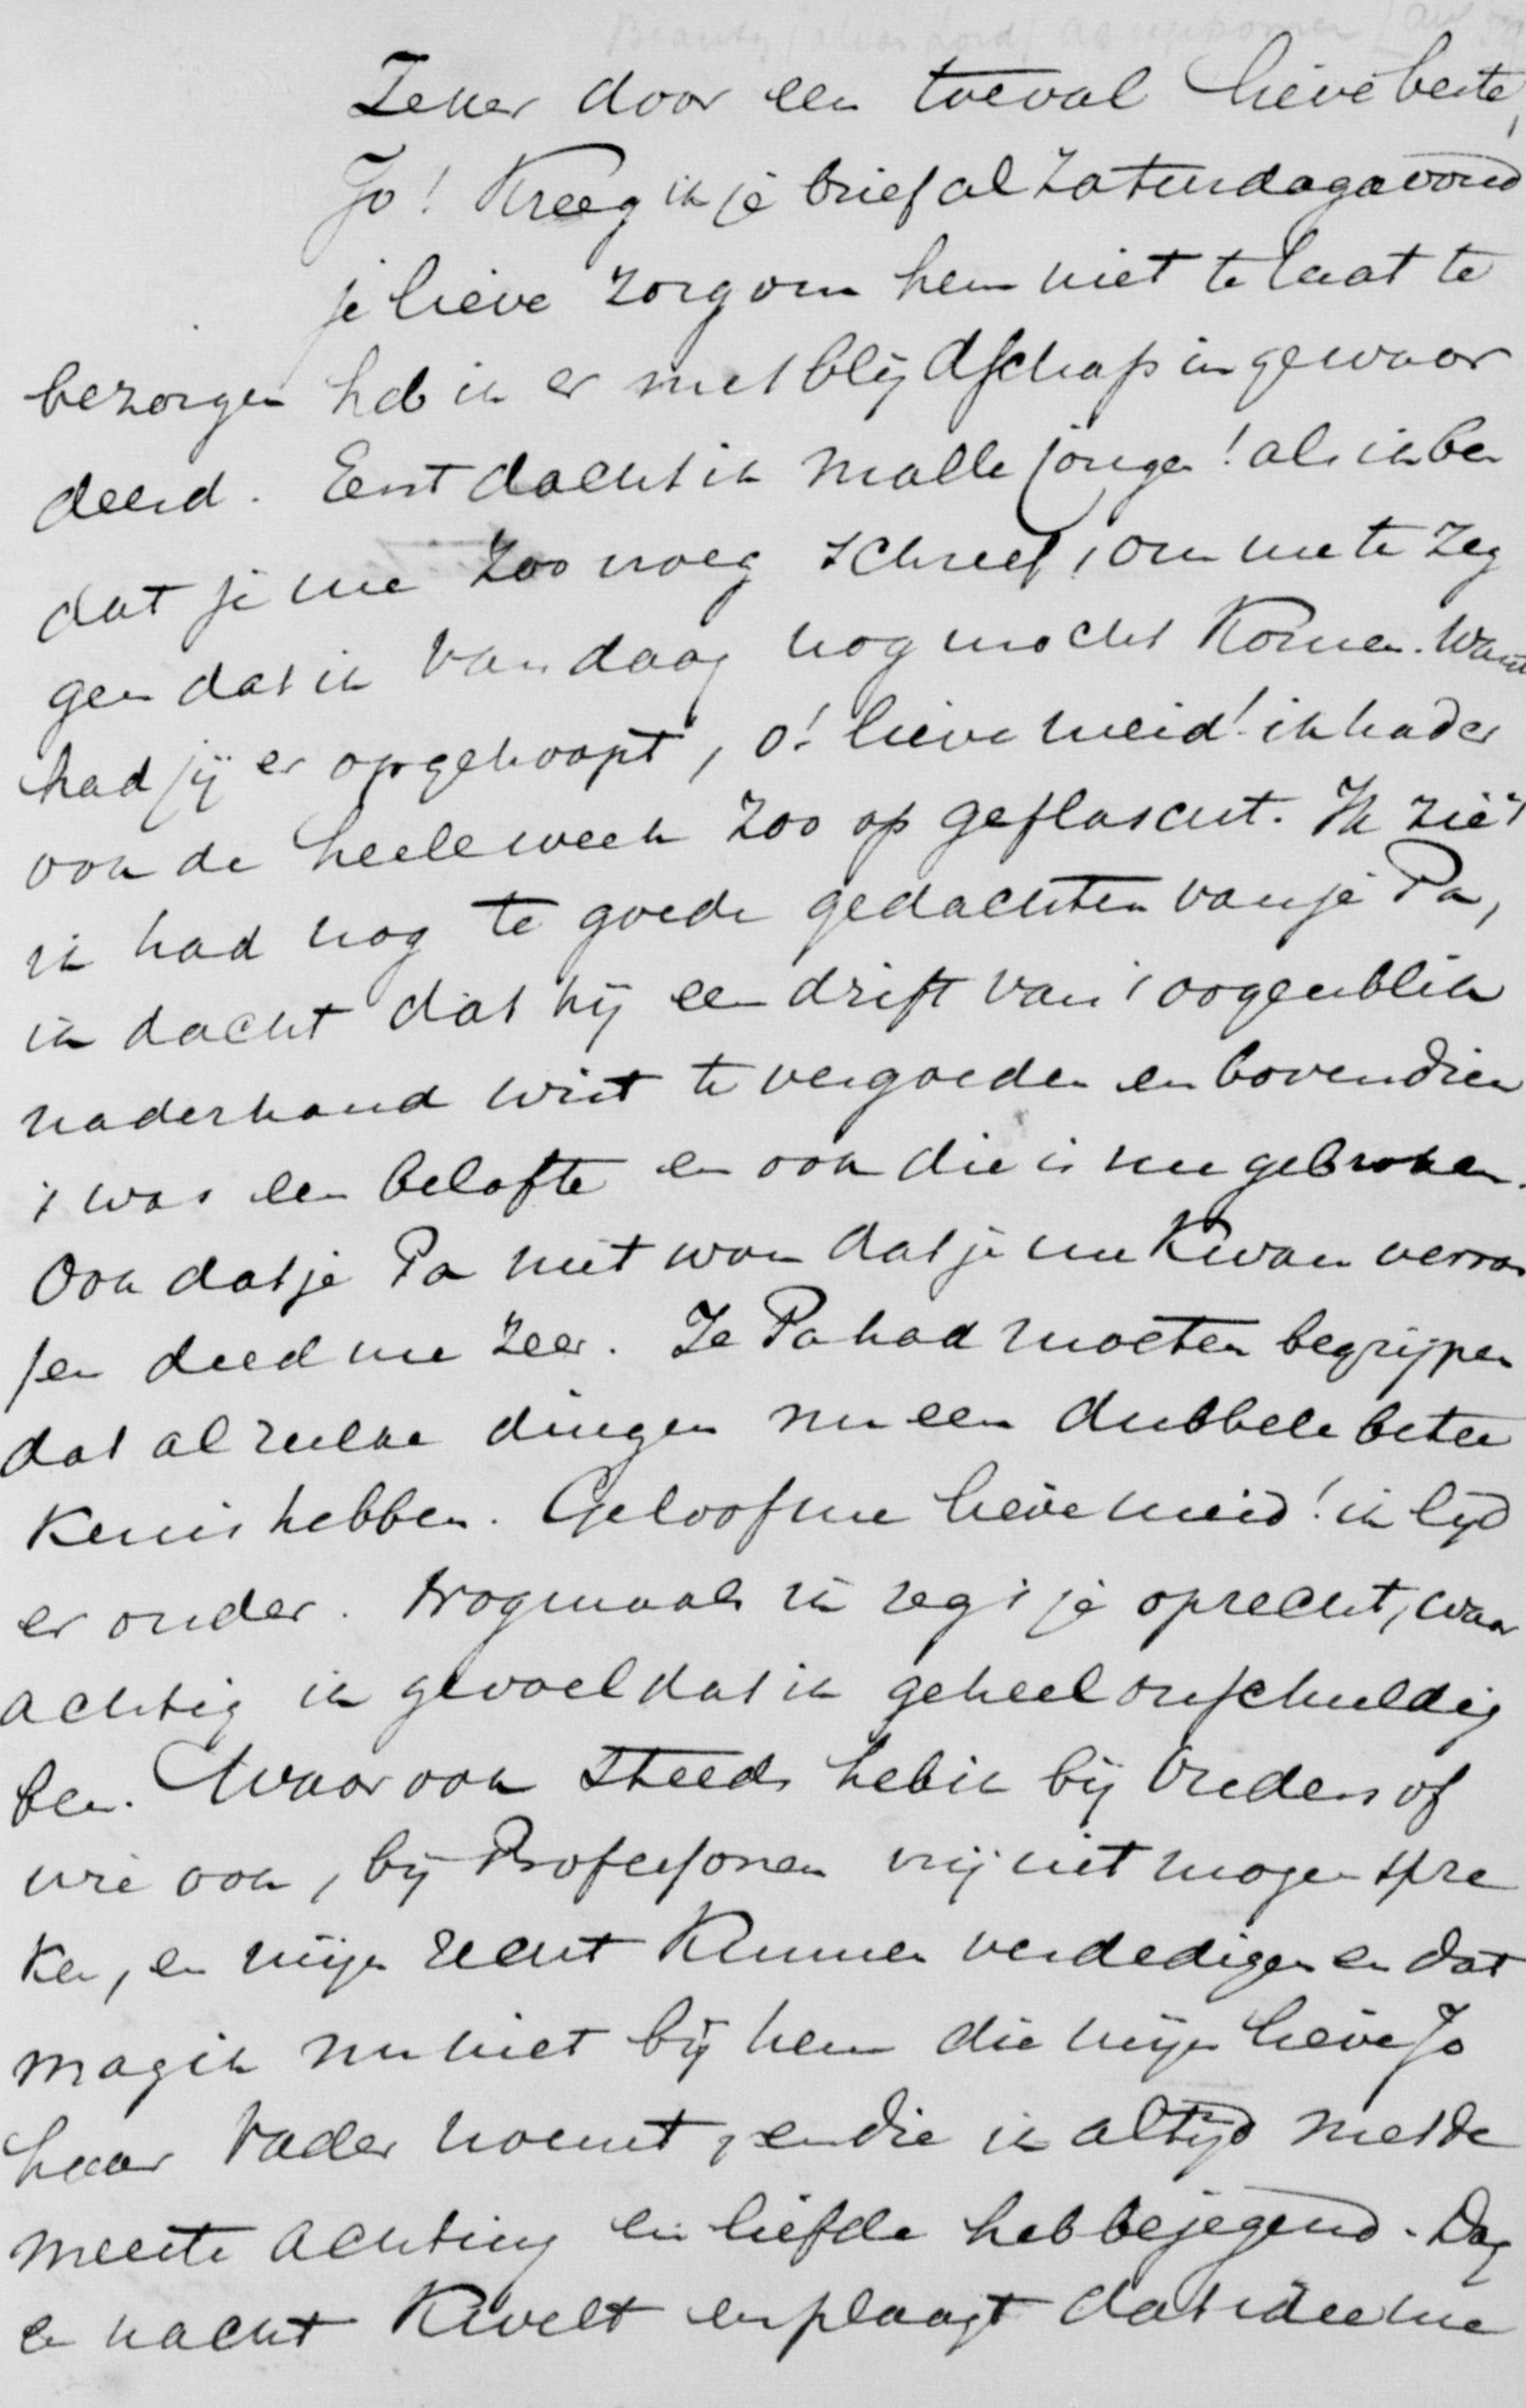 Zeker door een toeval lieve beste,
Jo! Kreeg ik je brief al Zaturdagavond
je lieve zorg om hem niet te laat te
bezorgen heb ik er met blijdschap in gewaar
deerd. Eerst dacht ik malle jongen! als ik ben
dat je me zoo vroeg schreef, om me te zeg
gen dat ik vandaag nog mocht komen. Want
had jij er op gehoopt, o! lieve meid! ik had er
ook de heele week zoo op gevlascht. Ik zie 't
ik had nog te goede gedachten van je Pa,
ik dacht dat hij een drift van 't oogenblik
naderhand wist te vergoeden en bovendien
't was een belofte en ook die is nu gebroken.
Ook dat je Pa niet wou dat je me kwam verras
sen deed me zeer. Je Pa had moeten begrijpen
dat al zulke dingen nu een dubbele betee
kenis hebben. Geloof me lieve meid! ik lijd
er onder. Nogmaals ik zeg 't je oprecht, waar
achtig ik gevoel dat ik geheel onschuldig
ben. Waar ook steeds heb ik bij Vreders of
wie ook, bij Professoren vrij uit mogen spre
ken, en mijn recht kunnen verdedigen en dat
mag ik nu niet bij hem die mijn lieve Jo
haar Vader noemt, en die ik altijd met de
meeste achting en liefde heb bejegend. Dag
en nacht kwelt en plaagt dat idee me